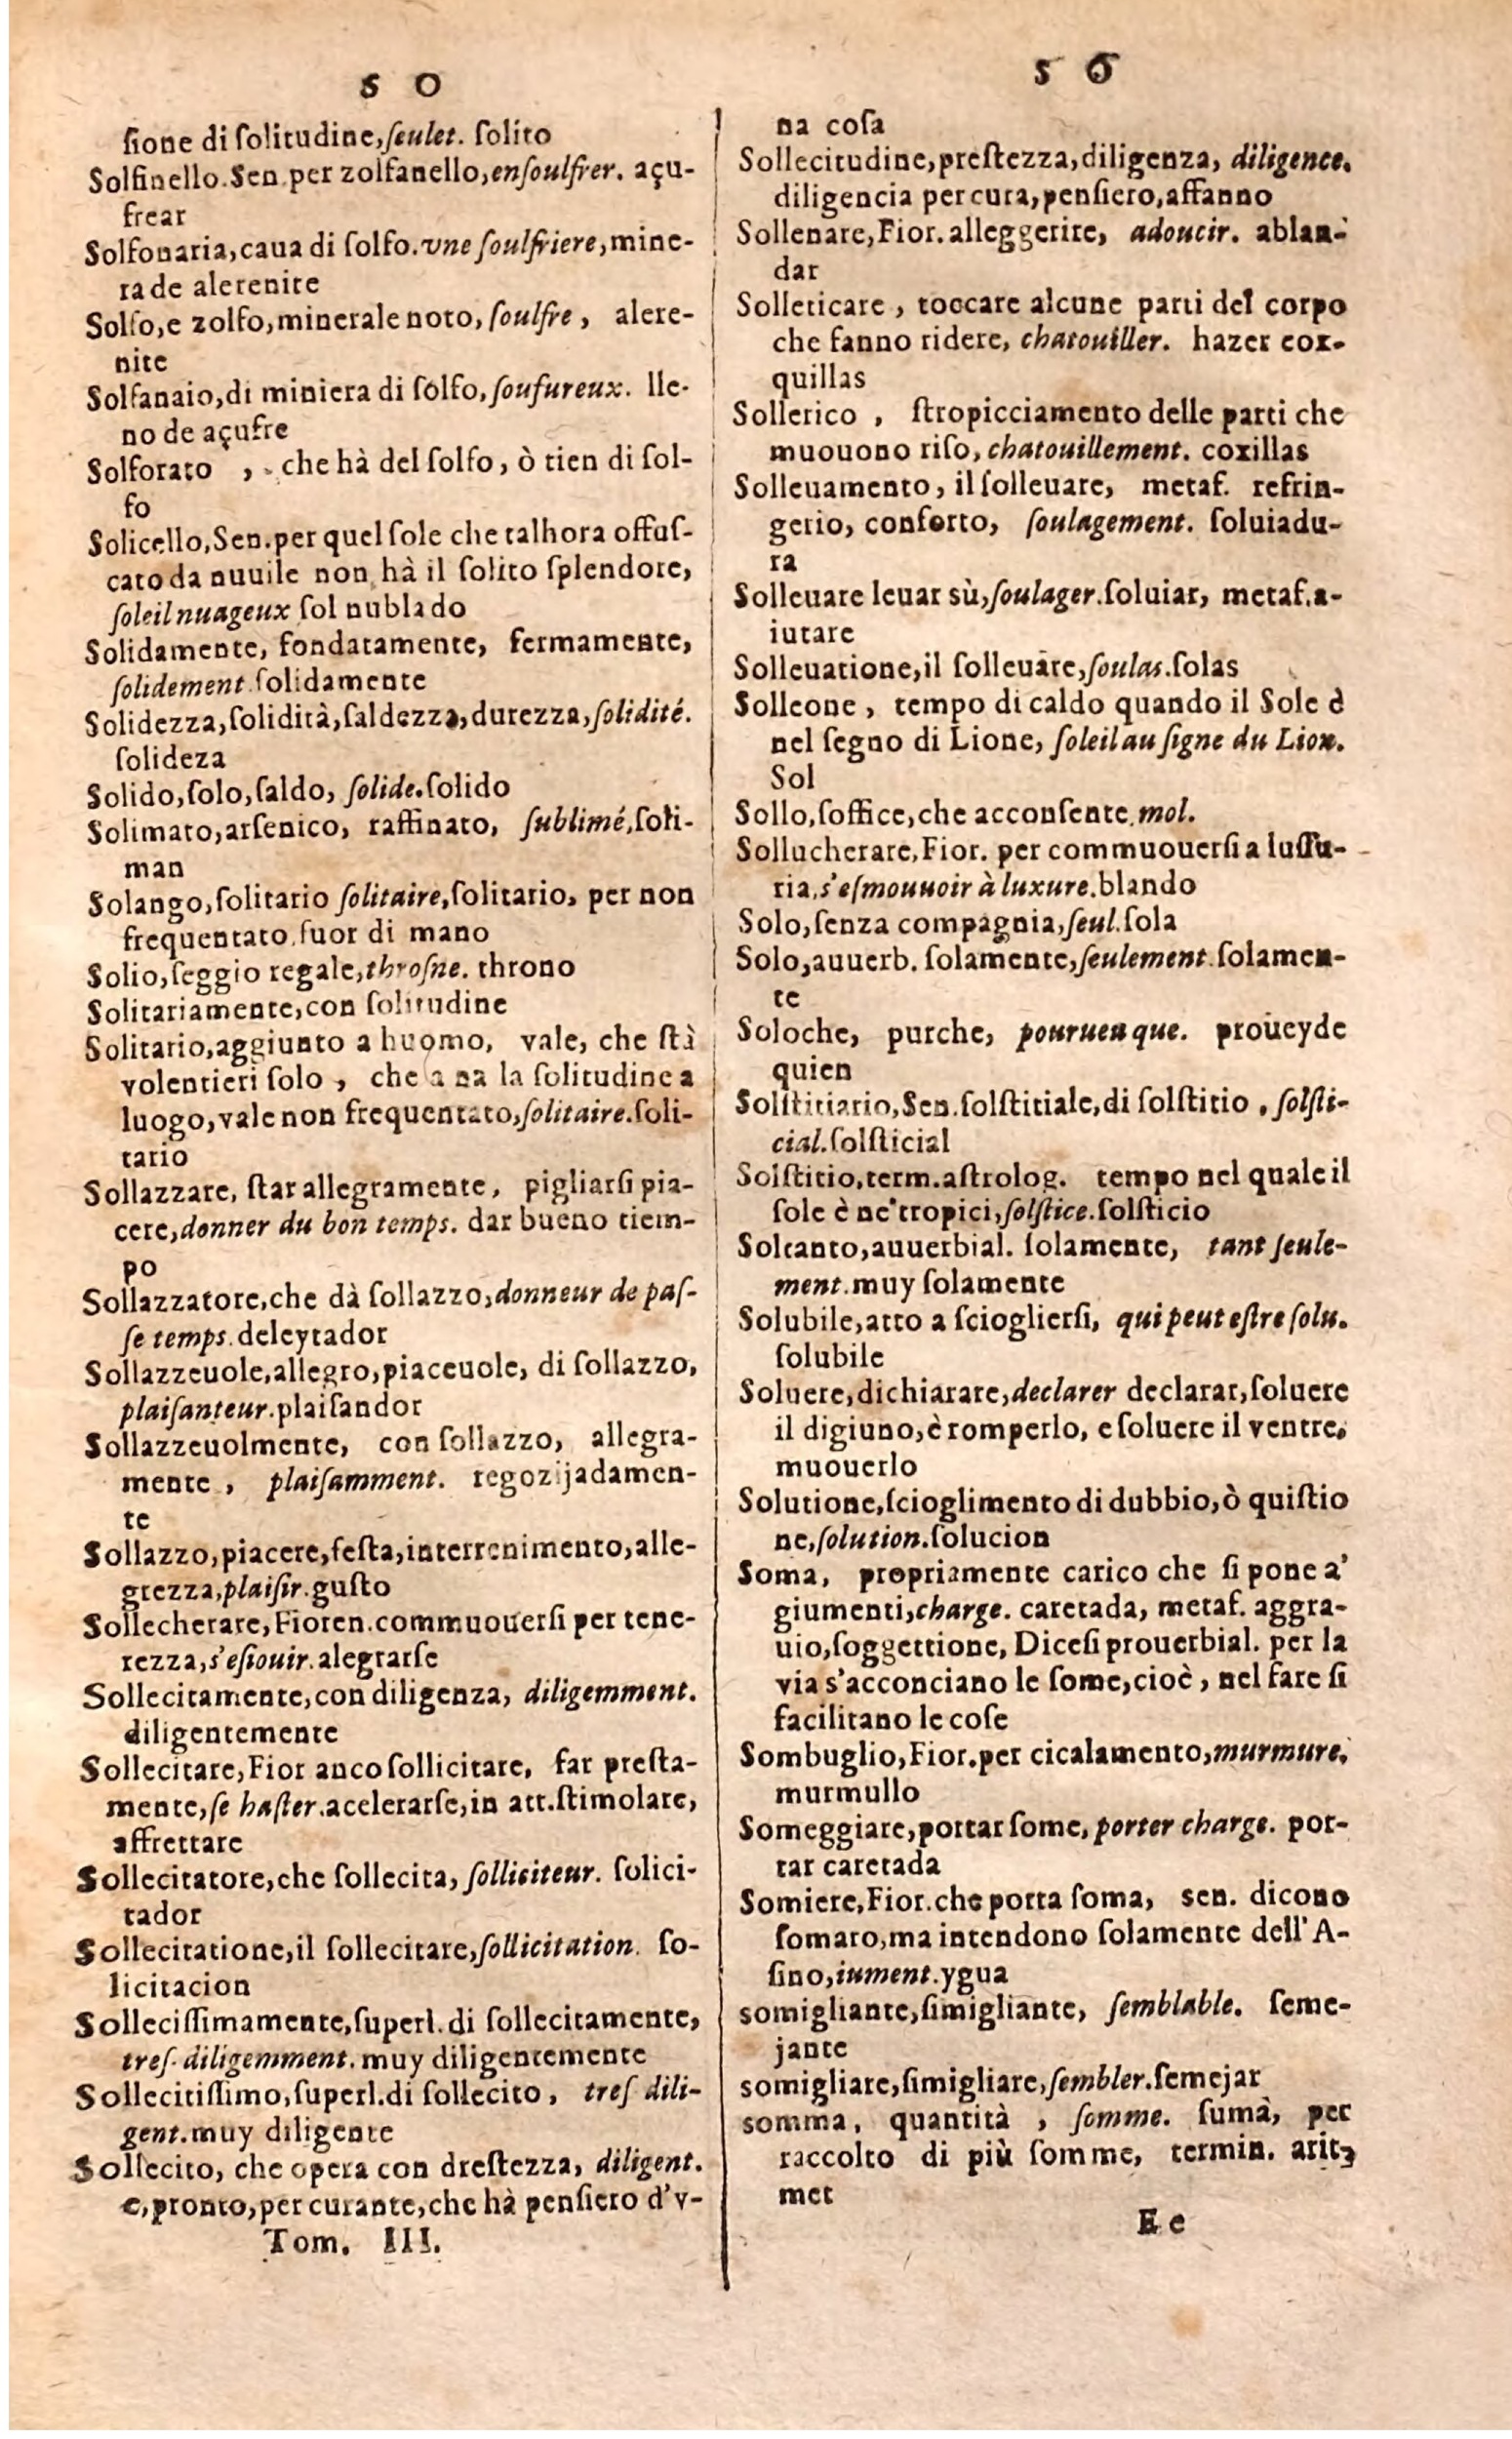 s o
ſione di ſolitudine,ſeulet. ſolito
Solfinello.Sen.per zolfanello,enſoulfrer. açu-
frear
Solfonaria,caua di ſolfo.vne ſoulfriere,mine-
ra de alerenite
Solfo,e zolfo,minerale noto,ſoulfre, alere-
nite
Solfanaio,di miniera di ſolfo,ſoufureux. lle-
no de açufre
Solforato, che hà del ſolfo, ò tien di ſol-
fo
Solicello,Sen.per quel ſole che talhora offuſ-
cato da nuuile non hà il ſolito ſplendore,
ſoleil nuageux ſol nublado
Solidamente, fondatamente, fermamente,
ſolidement.ſolidamente
Solidezza,ſolidità,ſaldezza,durezza,ſolidité.
ſolideza
Solido,ſolo,ſaldo, ſolide.ſolido
Solimato,arſenico, raffinato, ſublimé,ſoli-
man
Solango,ſolitario ſolitaire,ſolitario, per non
frequentato,fuor di mano
Solio,ſeggio regale,throſne. throno
Solitariamente,con ſolitudine
Solitario,aggiunto a huomo, vale, che ſtà
volentieri ſolo, che a na la ſolitudine a
luogo,vale non frequentato,ſolitaire.ſoli-
tario
Sollazzare, ſtar allegramente, pigliarſi pia-
cere,donner du bon temps. dar bueno tiem-
po
Sollazzatore,che dà ſollazzo,donneur de paſ-
ſe temps.deleytador
Sollazzeuole,allegro,piaceuole, di ſollazzo,
plaiſanteur.plaiſandor
Sollazzeuolmente, con ſollazzo, allegra-
mente, plaiſamment. regozijadamen-
te
Sollazzo,piacere,feſta,interrenimento,alle-
grezza,plaiſir.guſto
Sollecherare,Fioren.commuouerſi per tene-
rezza,s'eſiouir.alegrarſe
Sollecitamente,con diligenza, diligemment.
diligentemente
Sollecitare,Fior anco ſollicitare, far preſta-
mente,ſe haſter.acelerarſe,in att.ſtimolare,
affrettare
Sollecitatore,che ſollecita, ſolliciteur. ſolici-
tador
Sollecitatione,il ſollecitare,ſollicitation. ſo-
licitacion
Solleciſſimamente,ſuperl.di ſollecitamente,
treſ-diligemment.muy diligentemente
Sollecitiſſimo,ſuperl.di ſollecito, treſ dili-
gent.muy diligente
Sollecito, che opera con dreſtezza, diligent.
e,pronto,per curante,che hà penſiero d'v-
Tom. III.
s o
na coſa
Sollecitudine,preſtezza,diligenza, diligence.
diligencia per cura,penſiero,affanno
Sollenare,Fior.alleggerire, adoucir. ablan-
dar
Solleticare, toccare alcune parti del corpo
che fanno ridere, chatouiller. hazer cox-
quillas
Sollerico, ſtropicciamento delle parti che
muouono riſo,chatouillement. coxillas
Solleuamento, il ſolleuare, metaf. refrin-
gerio, conforto, ſoulagement. ſoluiadu-
ra
Solleuare leuar sù,ſoulager.ſoluiar, metaf.a-
iutare
Solleuatione,il ſolleuare,ſoulas.ſolas
Solleone, tempo di caldo quando il Sole è
nel ſegno di Lione, ſoleil au ſigne du Lion.
Sol
Sollo,ſoffice,che acconſente,mol.
Sollucherare,Fior. per commuouerſi a luſſu-
ria,s'eſmouuoir à luxure.blando
Solo,ſenza compagnia,ſeul.ſola
Solo,auuerb. ſolamente,ſeulement.ſolamen-
te
Soloche, purche, pourueu que. proueyde
quien
Solſtitiario,Sen.ſolſtitiale,di ſolſtitio, ſolſti-
cial.ſolſticial
Solſtitio,term.aſtrolog. tempo nel quale il
ſole è ne'tropici,ſolſtice.ſolſticio
Soltanto,auuerbial. ſolamente, tant ſeule-
ment.muy ſolamente
Solubile,atto a ſciogliersi, qui peut eſtre ſolu.
ſolubile
Soluere,dichiarare,declarer declarar,ſoluere
il digiuno,è romperlo, e ſoluere il ventre,
muouerlo
Solutione,ſcioglimento di dubbio,ò quiſtio
ne,ſolution.ſolucion
Soma, propriamente carico che ſi pone a'
giumenti,charge. caretada, metaf. aggra-
uio,ſoggettione, Diceſi prouerbial. per la
via s'acconciano le ſome,cioè, nel fare ſi
facilitano le coſe
Sombuglio,Fior.per cicalamento,murmure.
murmullo
Someggiare,portar ſome,porter charge. por-
tar caretada
Somiere,Fior.che porta ſoma, sen. dicono
ſomaro,ma intendono ſolamente dell'A-
ſino,iument.ygua
somigliante,ſimigliante, ſemblable. ſeme-
jante
somigliare,ſimigliare,ſembler.ſemejar
somma, quantità, ſomme. ſuma, per
raccolto di più ſomme, termin. arit
met
E e